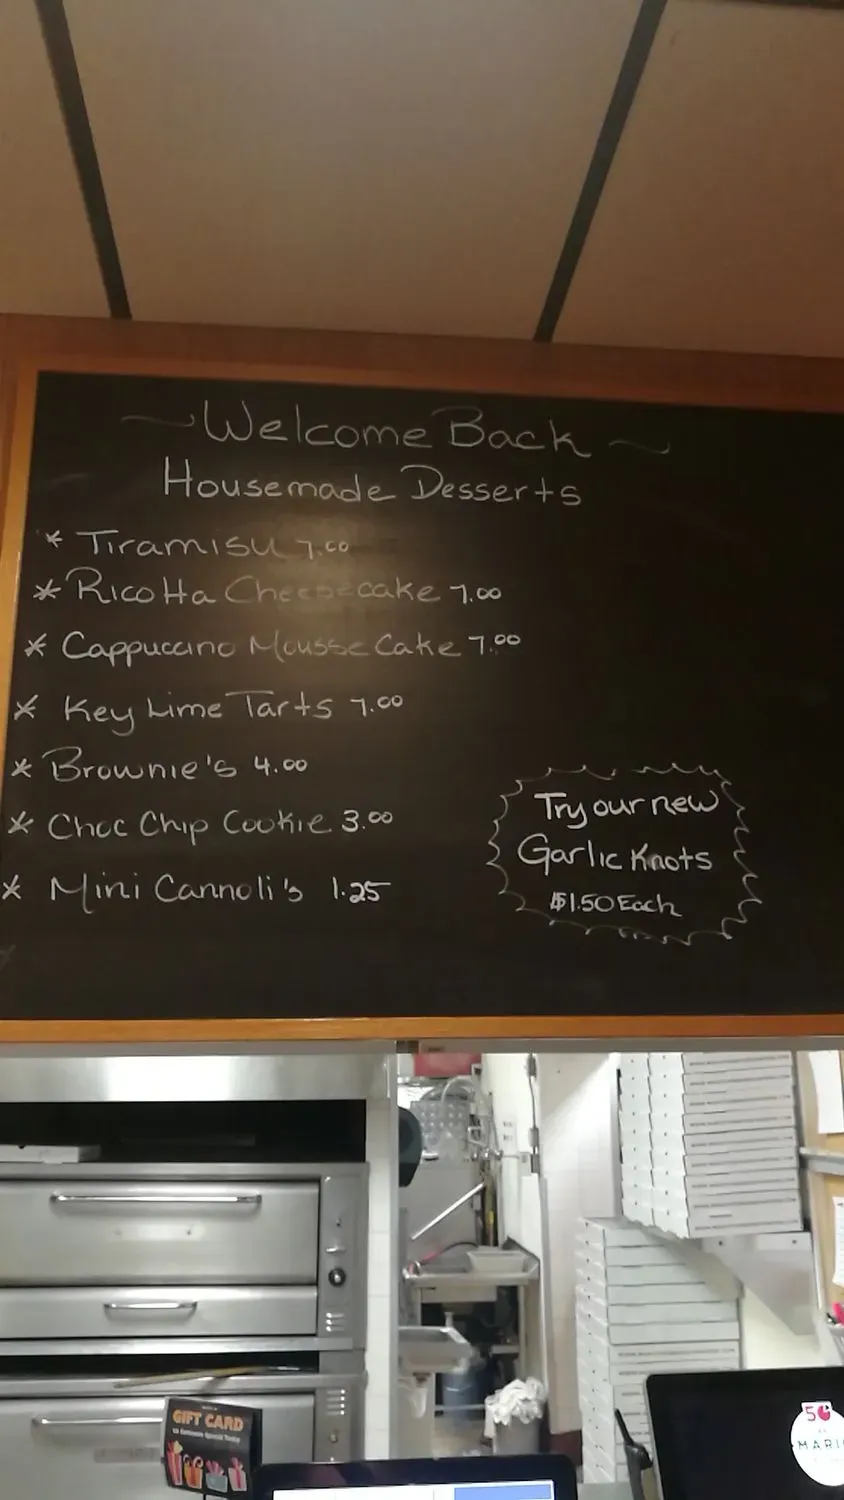 ~ Welcome Back ~
Housemade Desserts
* Tiramisu 7.00
* Ricotta Cheesecake 7.00
* Cappuccino Mousse Cake 7.00
* Key Lime Tarts 7.00
* Brownie's 4.00
* Choc Chip Cookie 3.00
* Mini Cannoli's 1.25
Try our new
Garlic Knots
$1.50 Each
GIFT CARD
50
MARI